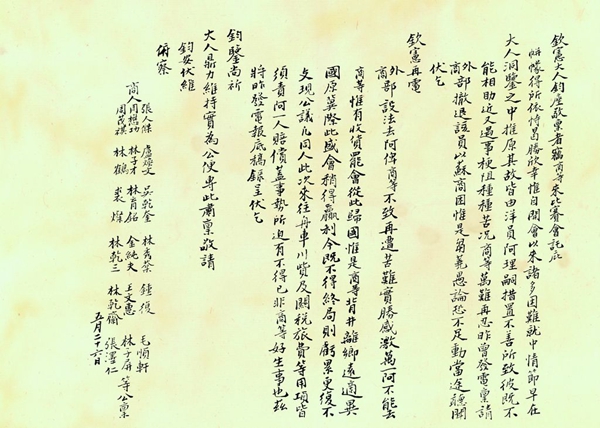 欽憲大人鈞座敬稟者竊商等來比賽會託庇
帡幪得所依恃曷勝欣幸惟自開會以來諸多困難就中情節早在
大人洞鑒之中推原其故皆由洋員阿理嗣措置不善所致彼既不
能相助近又遇事梗阻種種苦况商等萬難再忍昨曾發電稟請
商外部撤退該員以蘇商困惟是芻蕘愚論恐不足動當途聽聞
伏乞
欽憲再電
商外部設法去阿俾商等不致再遭苦難實勝感激萬一阿不能去
商等惟有收貨罷會從此歸國惟是商等背井離鄉遠適異
國原冀際此盛會稍得贏利今既不得終局則虧累更復不
支現公議凡同人此次來往舟車川贊及關税旅費等用項皆
須責阿一人賠償蓋事勢所迫有不得已非商等好生事也茲
將昨發電報底稿錄呈伏乞
鈞鑒尚祈
大人鼎力維持實為公便專此肅稟敬請
鈞安伏維
俯察
商人 張人傑 周想功 周茂祺
盧煙文 林子才 林鶴
吳乾奎 林育銘 裘煒
林秀榮 金純夫 林乾三
鍾復 王文惠 林乾齋
毛順軒 林子屏 張澤仁 等公稟
五月二十六日